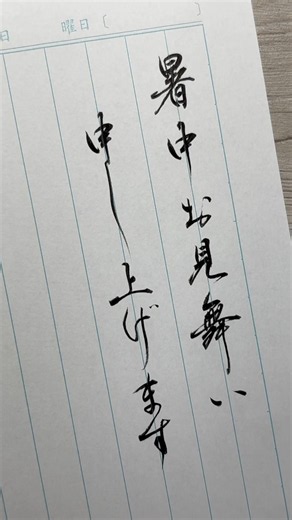 日　曜日〔　〕
暑中お見舞い
申し上げます